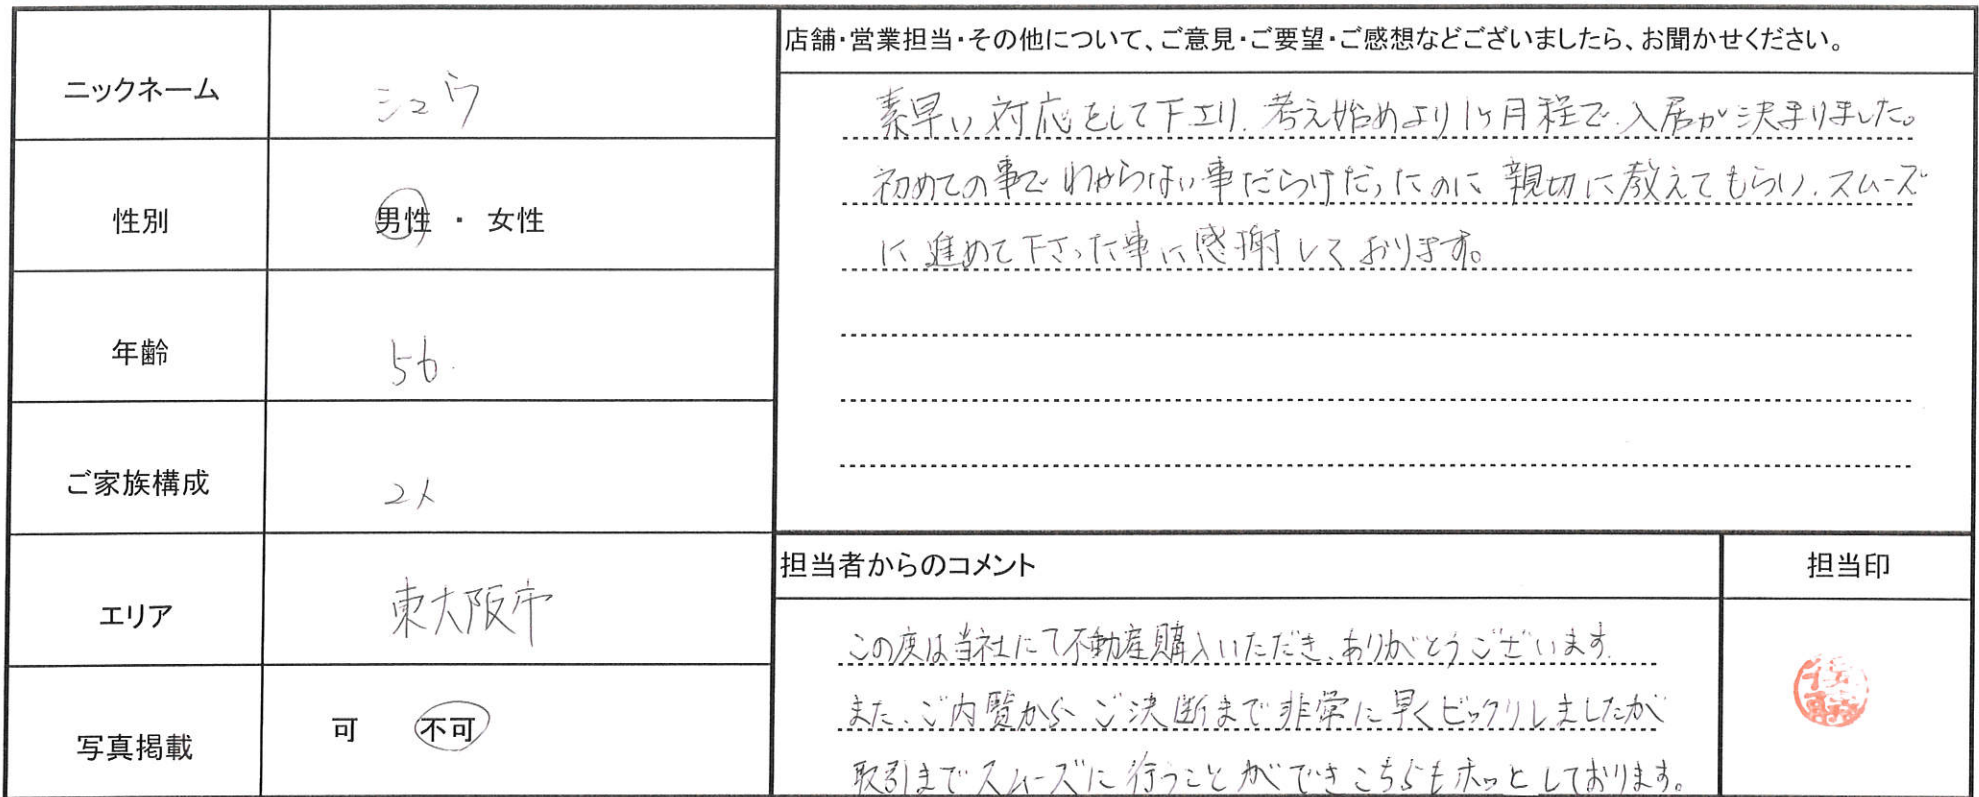 ニックネーム
シュウ
性別
男性 ・ 女性
年齢
56.
ご家族構成
2人
エリア
東大阪市
写真掲載
可 不可
店舗・営業担当・その他について、ご意見・ご要望・ご感想などございましたら、お聞かせください。
素早い対応をして下エリ、考え始めより1ヶ月程で、入居が決まりました。
初めての事でわからない事だらけだったのに親切に教えてもらい、スムーズ
に進めて下さった事に感謝しております。
担当者からのコメント
この度は当社にて不動産購入いただき、ありがとうございます
また、ご内覧からご決断まで非常に早くビックリしましたが
取引までスムーズに行うことができこちらもホッとしております。
担当印